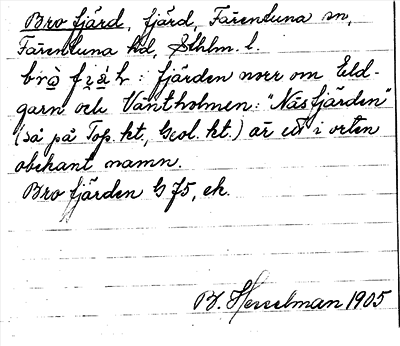 Bro fjärd, fjärd, Färentuna sn,
Färentuna hd, Sthlm. l.
fjärden norr om Eld-
garn och Väntholmen: "Näsfjärden"
(så på Top. kt, Geol. kt.) är ett i orten
obekant namn.
Bro fjärden G f5, ek.
B. Hesselman 1905